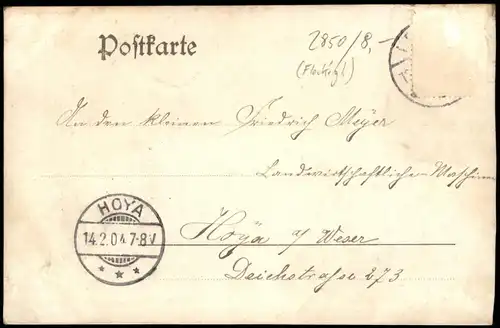 Postkarte
2850/8,-
(Fleckig!)
An den kleinen Friedrich Meyer
Landwirtschaftliche-Maschinen
HOYA
14.2.04.7-8V
Hoya a/ Weser
Deichstrasse 273